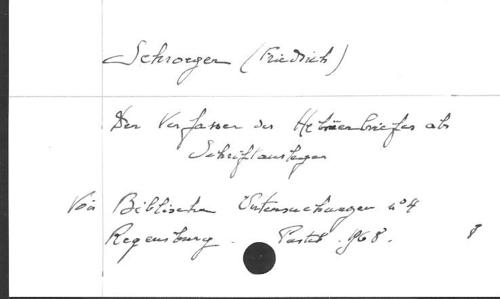 Schroeger (Friedrich)
Der Verfasser des Hebräerbriefes als
Schriftausleger
Voir Biblische Untersuchungen n° 4
Regensburg. Pustet. 1968. 8